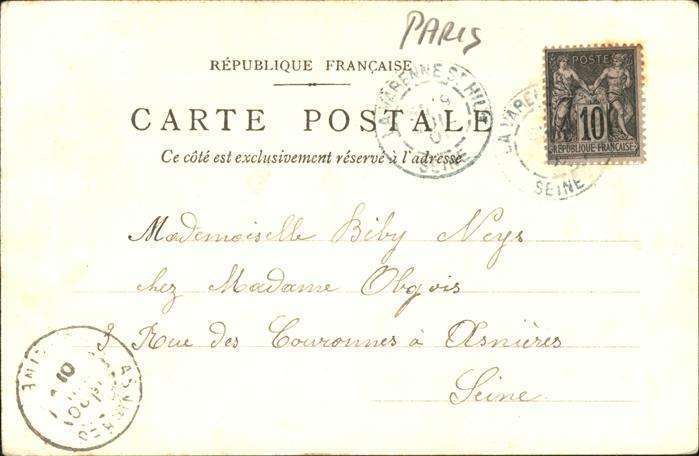 PARIS
RÉPUBLIQUE FRANÇAISE
CARTE POSTALE
Ce côté est exclusivement réservé à l'adresse
LA VARENNE ST HIL
SEINE
POSTE
10
RÉPUBLIQUE FRANÇAISE
LA VARE
SEINE
Mademoiselle Biby Neys
chez Madame Obgois
3 Rue des Couronnes à Asnières
Seine